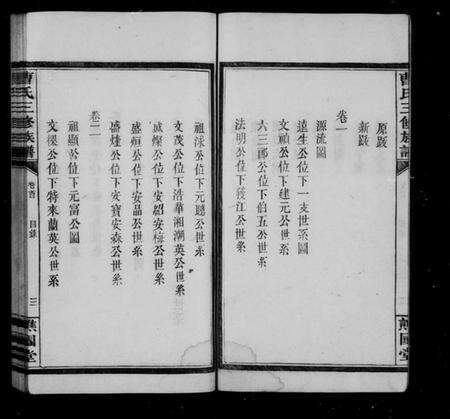 曹氏三修族譜
原跋
新跋
卷一
源流圖
遠生公位下一支世系圖
文禎公位下建元公世系
六三郎公位下伯五公世系
法明公位下長江公世系
祖球公位下元聰公世系
文茂公位下浩華湘潮英公世系
盛燦公位下安韶安梅公世系
盛烜公位下安品公世系
盛煃公位下安寶安森公世系
卷二
祖顯公位下元富公圖
文樑公位下特來蘭英公世系
曹氏三修族譜
卷首
目錄
三